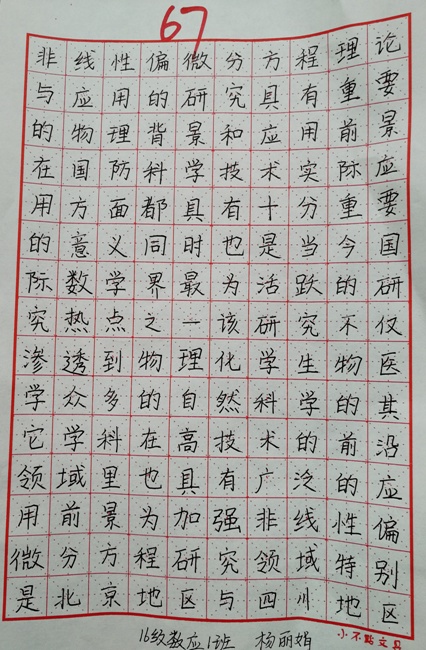 67
非线性偏微分方程理论
与应用的研究具有重要
的物理背景和应用前景
在国防科学技术实际应
用方面都具有十分重要
的意义同时也是当今国
际数学界最为活跃的研
究热点之一该研究不仅
渗透到物理化学生物医
学众多的自然科学的其
它学科在高技术的前沿
领域里也具有广泛的应
用前景为加强非线性偏
微分方程研究领域特别
是北京地区与四川地区
16级数应1班 杨丽娟
小不點文具